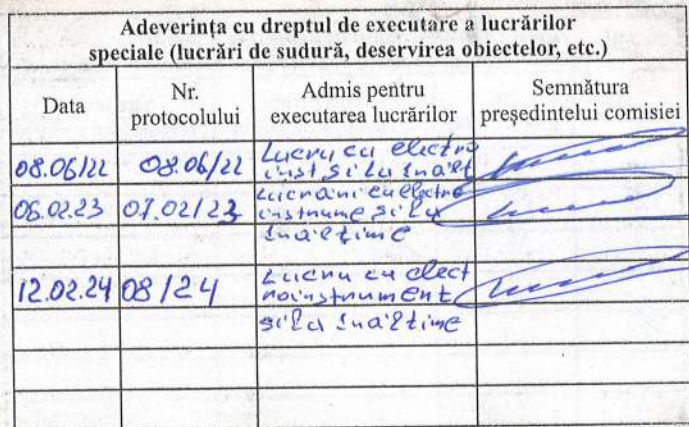 Adeverința cu dreptul de executare a lucrărilor
speciale (lucrări de sudură, deservirea obiectelor, etc.)
Data
Nr. protocolului
Admis pentru executarea lucrărilor
Semnătura președintelui comisiei
08.06/22 08.06/22 Lucru cu electro
inst si La inalt
06.02.23 07.02/23 Lucrani cu electro
instnume si La
inaltime
12.02.24 08/24 Lucnu cu elect
noinstnument
si La inaltime